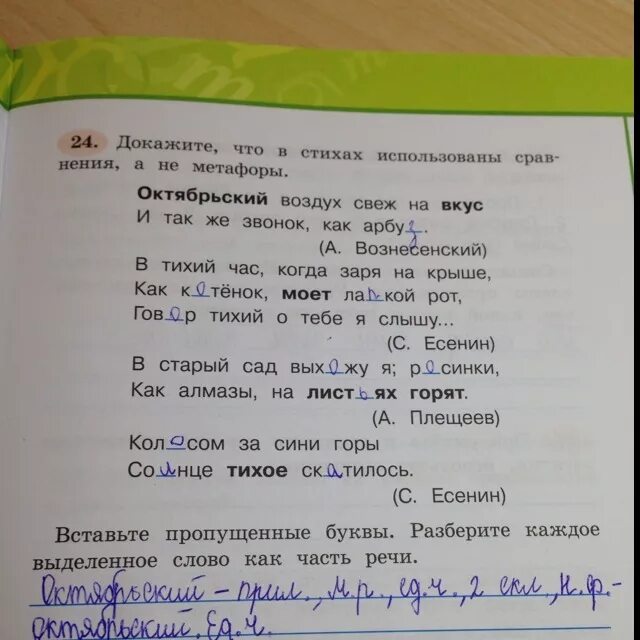 24. Докажите, что в стихах использованы срав-
нения, а не метафоры.
Октябрьский воздух свеж на вкус
И так же звонок, как арбуз.
(А. Вознесенский)
В тихий час, когда заря на крыше,
Как котёнок, моет лапкой рот,
Говор тихий о тебе я слышу...
(С. Есенин)
В старый сад выхожу я; росинки,
Как алмазы, на листьях горят.
(А. Плещеев)
Колесом за сини горы
Солнце тихое скатилось.
(С. Есенин)
Вставьте пропущенные буквы. Разберите каждое
выделенное слово как часть речи.
Октябрьский – прил., м.р., ед.ч., 2 скл., н.ф.-
октябрьский. Ед.ч.